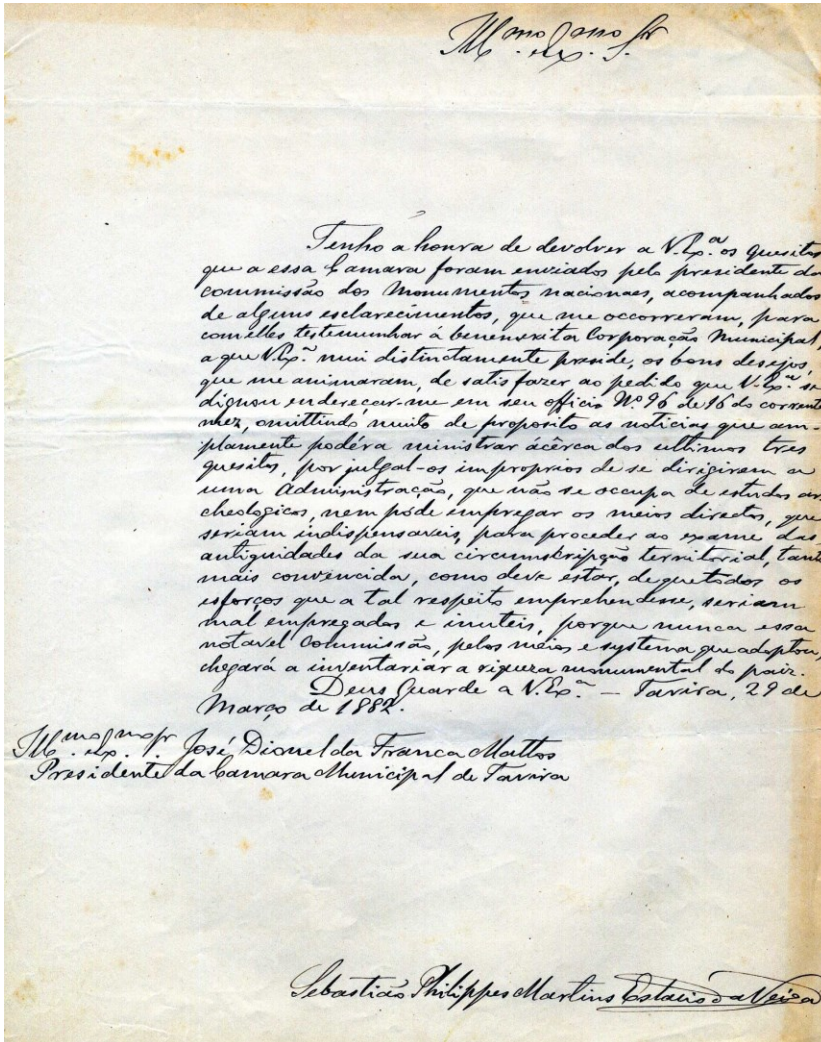 Ill.mo e Ex.mo Sr.
Tenho a honra de devolver a V. Ex.ª os quesitos
que a essa Camara foram enviados pelo presidente da
commissão dos Monumentos nacionaes, acompanhados
de alguns esclarecimentos, que me occorreram, para
com elles testemunhar á benemerita Corporação Municipal,
a que V. Ex.ª mui distinctamente preside, os bons desejos,
que me animaram, de satisfazer ao pedido que V. Ex.ª se
dignou endereçar-me em seu officio Nº 96 de 16 do corrente
mez, omittindo muito de proposito as noticias que am-
plamente podéra ministrar ácêrca dos ultimos tres
quesitos, por julgal-os improprios de se dirigirem a
uma Administração, que não se occupa de estudos ar-
cheologicos, nem póde empregar os meios directos, que
seriam indispensaveis, para proceder ao exame das
antiguidades da sua circumscripção territorial, tanto
mais convencida, como deve estar, de que todos os
esforços que a tal respeito emprehendesse, seriam
mal empregados e inuteis, porque nunca essa
notavel Commissão, pelos meios e systema que adoptou,
chegará a inventariar a riqueza monumental do paiz.
Deus Guarde a V. Ex.ª — Tavira, 29 de
Março de 1882.
Ill.mo e Ex.mo Sr. José Dionel da Franca Mattos
Presidente da Camara Municipal de Tavira
Sebastião Philippes Martins Estacio da Veiga